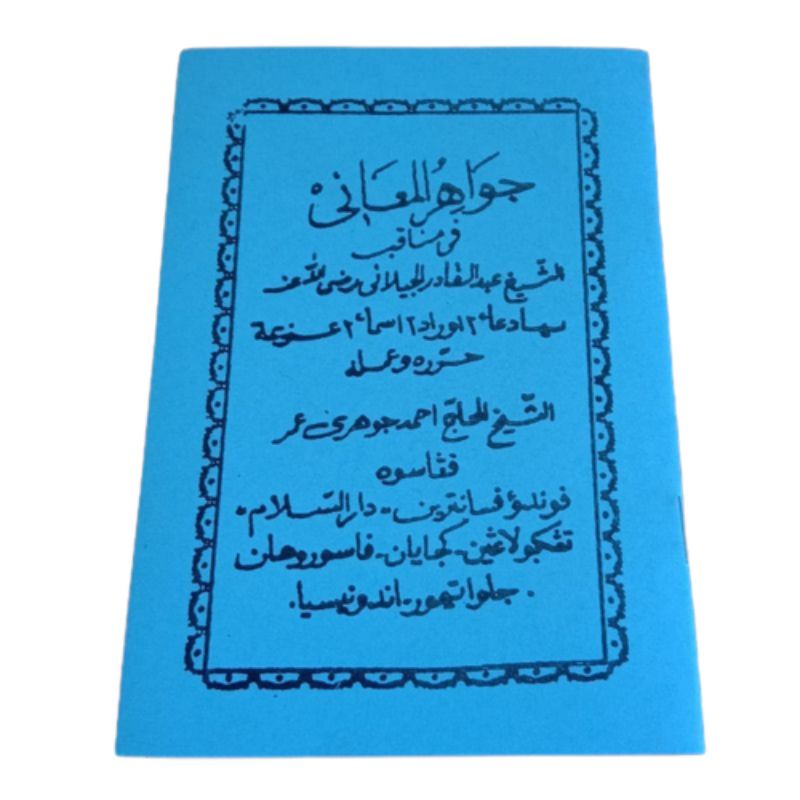 جَوَاهِرُ المَعَانِى
فى مناقب
الشّيخ عبد القادر الجيلانى رضى اللّٰه عنه
بها دعاء٢ اوراد٢ اسماء٢ عزيمة
حرّره وعمله
الشّيخ الحاج احمد جوهرى عمر
فڠاسوه
فوندؤ فسانترين - دار السّلام -
تڠكولاڠين - كجايان - فاسوروهان
. جاوا تيمور - اندونيسيا .